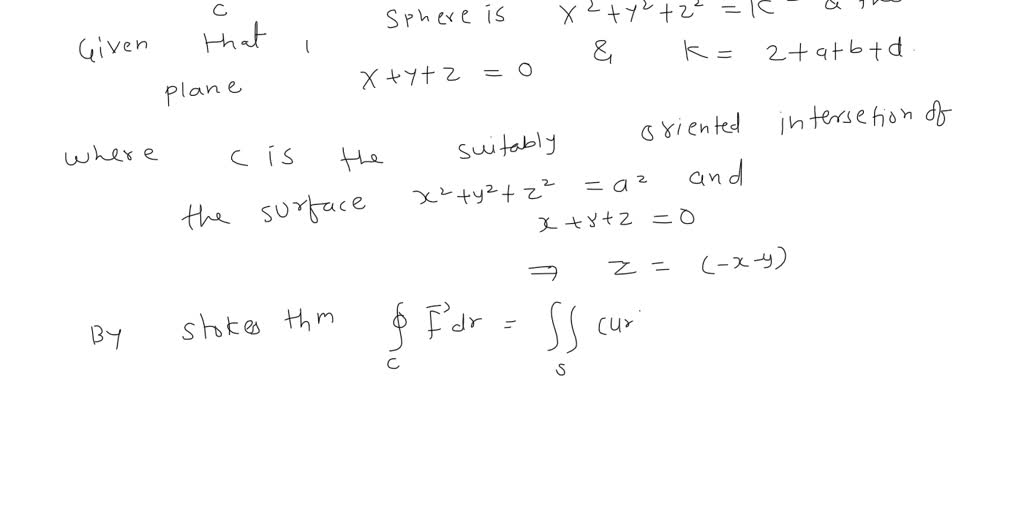 c
Given that , Sphere is x²+y²+z² = K
plane x+y+z = 0 & K = 2+a+b+d.
where c is the suitably oriented intersetion of
the surface x²+y²+z² = a² and
x+y+z = 0
⇒ z = (-x-y)
By stokes thm ∮ F⃗ dr = ∬ cur
c s